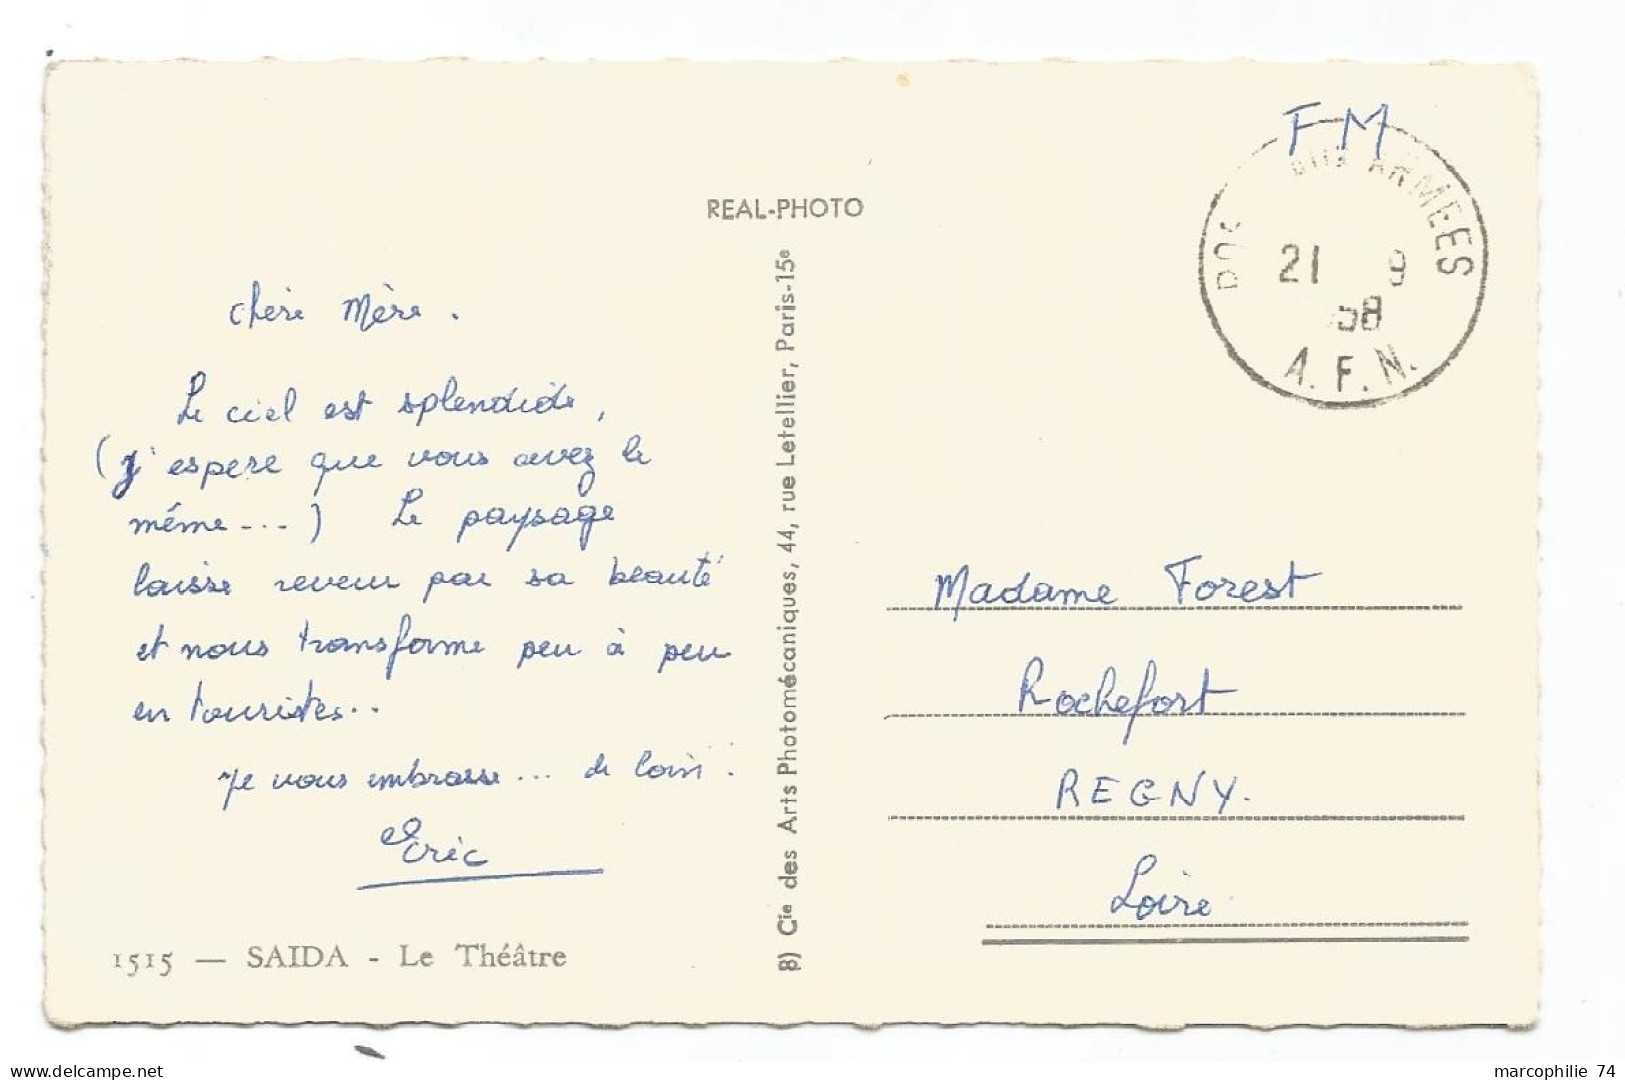 FM
POS aux ARMEES
21 9
58
A.F.N.
REAL-PHOTO
chère Mère.
Le ciel est splendide,
(j'espere que vous avez le
même---) Le paysage
laisse reveur par sa beauté
et nous transforme peu à peu
en touristes..
Je vous embrasse... de loin.
Eric
1515 — SAIDA - Le Théâtre
8) Cie des Arts Photomécaniques, 44, rue Letellier, Paris-15e
Madame Forest
Rochefort
REGNY.
Loire
marcophilie 74
www.delcampe.net